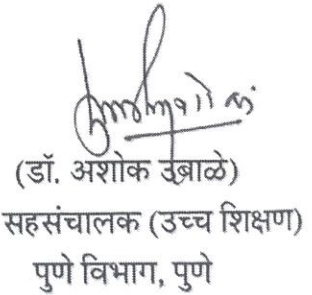 (डॉ. अशोक उबाळे)
सहसंचालक (उच्च शिक्षण)
पुणे विभाग, पुणे